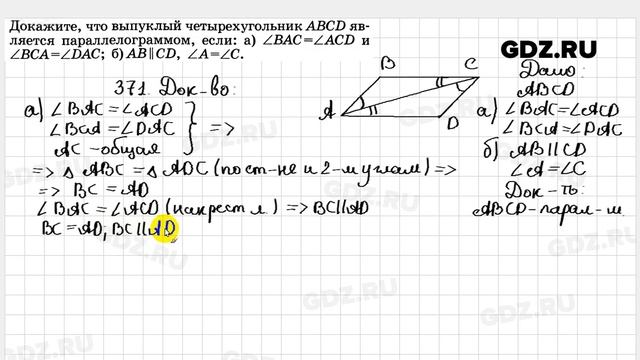 Докажите, что выпуклый четырехугольник ABCD яв-
ляется параллелограммом, если: а) ∠BAC=∠ACD и
∠BCA=∠DAC; б) AB∥CD, ∠A=∠C.
GDZ.RU
371. Док-во:
а) ∠BAC = ∠ACD
∠BCA = ∠DAC
AC - общая
} =>
=> △ ABC = △ ADC (по ст-не и 2-м углам) =>
=> BC = AD
∠BAC = ∠ACD (накрест л) => BC ∥ AD
BC = AD; BC ∥ AD
B
C
A
D
Дано:
ABCD
а) ∠BAC=∠ACD
∠BCA=∠DAC
б) AB∥CD
∠A=∠C
Док-ть:
ABCD-парал-м.